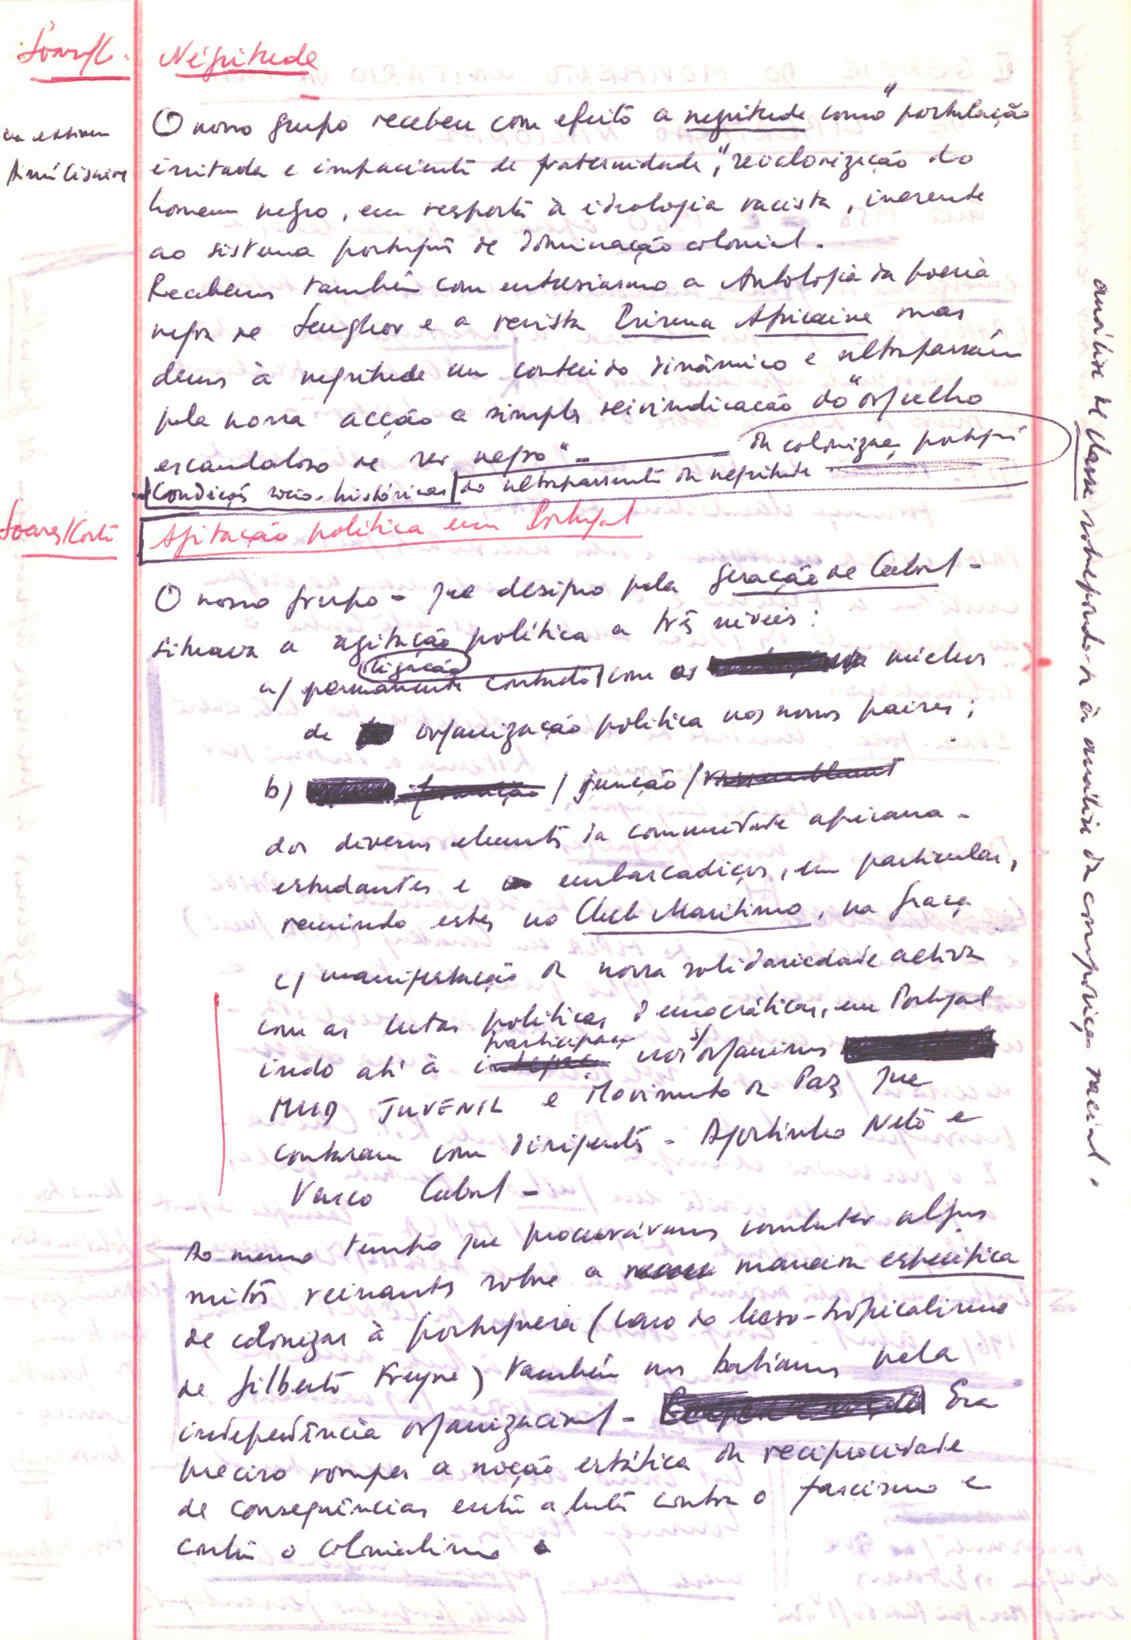 Négritude
O nosso grupo recebeu com efeito a negritude como "postulação
irritada e impaciente de fraternidade", revalorização do
homem negro, em resposta à ideologia racista, inerente
ao sistema português de dominação colonial.
Recebemos também com entusiasmo a Antologia da poesia
negra de Senghor e a revista Présence Africaine mas
demos à negritude um conteúdo dinâmico e ultrapassámos
pela nossa acção a simples reivindicação do "orgulho
escandaloso de ser negro".
da colonização portuguesa
Condições socio-históricas do ultrapassamento da negritude
Soares/
Agitação política em Portugal
O nosso grupo - que designo pela geração de Cabral -
situava a agitação política a três níveis:
ligação
a/ permanente contacto com os núcleos
de organização política nos nossos países;
b) / junção /
dos diversos elementos da comunidade africana -
estudantes e embarcadiços, em particular,
reunindo estes no Club Marítimo, na Graça
c/ manifestação da nossa solidariedade activa
com as lutas políticas democráticas, em Portugal
participação
indo até à nos organismos
MUD JUVENIL e Movimento da Paz que
contaram com dirigentes - Agostinho Neto e
Vasco Cabral -
Ao mesmo tempo que procurávamos combater alguns
mitos reinantes sobre a maneira específica
de colonizar à portuguesa (caso do luso-tropicalismo
de Gilberto Freyre) também nos batíamos pela
independência organizacional - Era
preciso romper a noção estática da reciprocidade
de consequências entre a luta contra o fascismo e
contra o colonialismo
análise de classe sobrepondo-se à análise da composição racial.